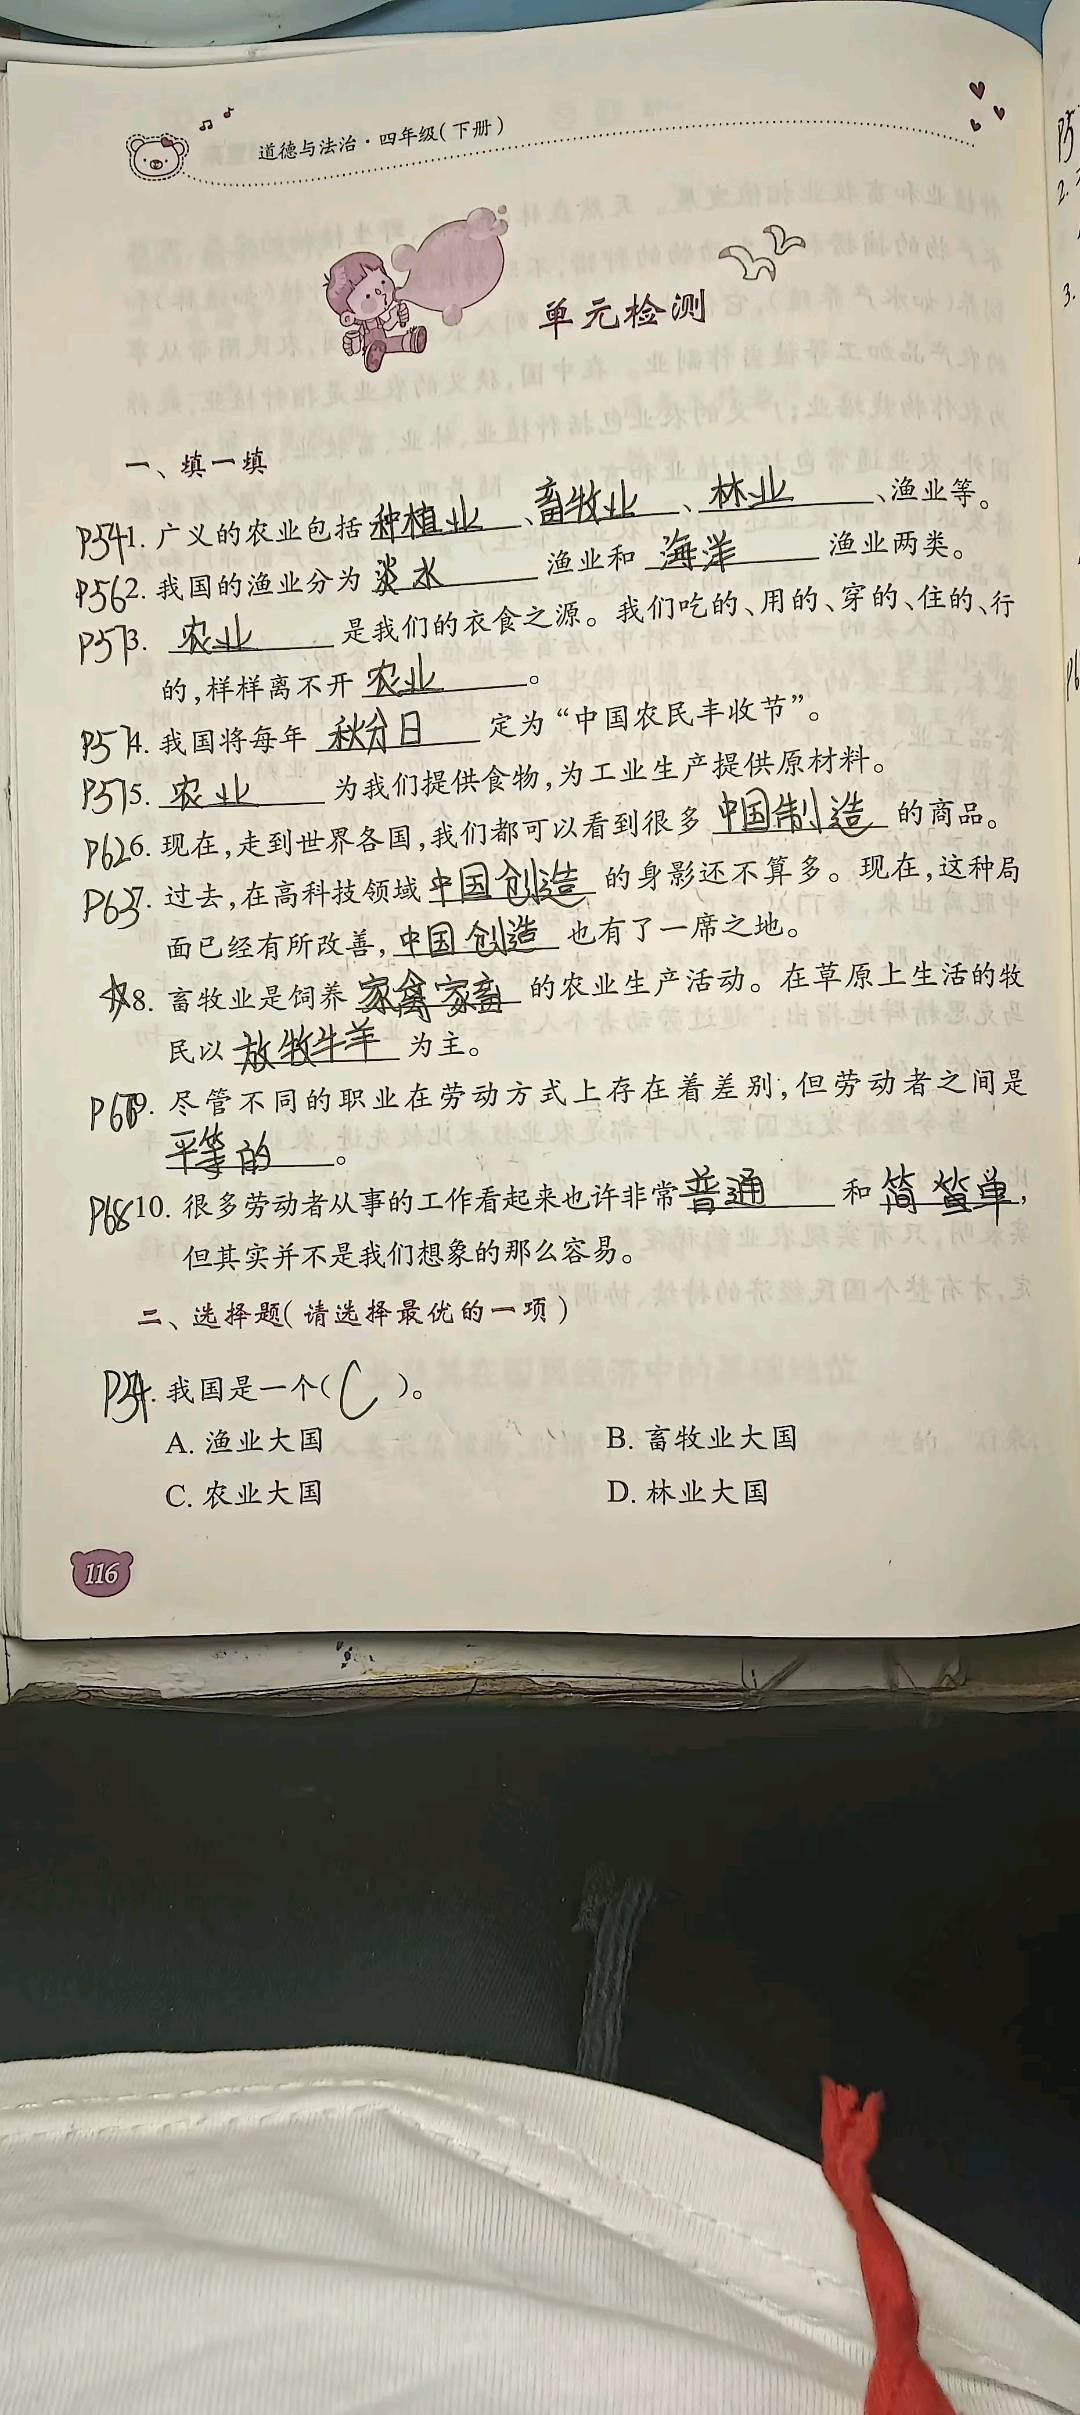 道德与法治·四年级(下册)
单元检测
一、填一填
P54 1. 广义的农业包括种植业、畜牧业、林业、渔业等。
P56 2. 我国的渔业分为淡水渔业和海洋渔业两类。
P57 3. 农业是我们的衣食之源。我们吃的、用的、穿的、住的、行
的,样样离不开农业。
P57 4. 我国将每年秋分日定为“中国农民丰收节”。
P57 5. 农业为我们提供食物,为工业生产提供原材料。
P62 6. 现在,走到世界各国,我们都可以看到很多中国制造的商品。
P63 7. 过去,在高科技领域中国创造的身影还不算多。现在,这种局
面已经有所改善,中国创造也有了一席之地。
8. 畜牧业是饲养家禽家畜的农业生产活动。在草原上生活的牧
民以放牧牛羊为主。
9. 尽管不同的职业在劳动方式上存在着差别,但劳动者之间是
平等的。
P68 10. 很多劳动者从事的工作看起来也许非常普通和简单,
但其实并不是我们想象的那么容易。
二、选择题(请选择最优的一项)
P54 我国是一个(C)。
A. 渔业大国 B. 畜牧业大国
C. 农业大国 D. 林业大国
116
2.
3.